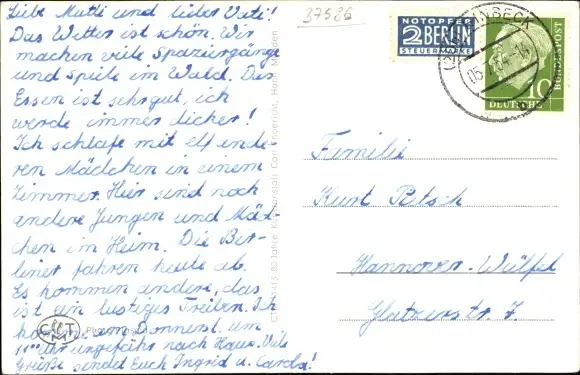 Liebe Mutti und lieber Vati!
Das Wetter ist schön. Wir
machen viele Spaziergänge
und Spiele im Wald. Das
Essen ist sehr gut, ich
werde immer dicker!
Ich schlafe mit elf ande-
ren Mädchen in einem
Zimmer. Hier sind noch
andere Jungen und Mäd-
chen im Heim. Die Ber-
liner fahren heute ab.
Es kommen andere, das
ist ein lustiges Treiben. Ich
komme am Donnerst. um
11⁰⁰ Uhr ungefähr nach Haus. Viele
Grüße sendet Euch Ingrid u. Carola!
37586
NOTOPFER
2 BERLIN
STEUERMARKE
EINBECK
DEUTSCHE
BUNDESPOST
10
Familie
Kurt Petsch
Hannover-Wülfel
Glatzerstr. 7